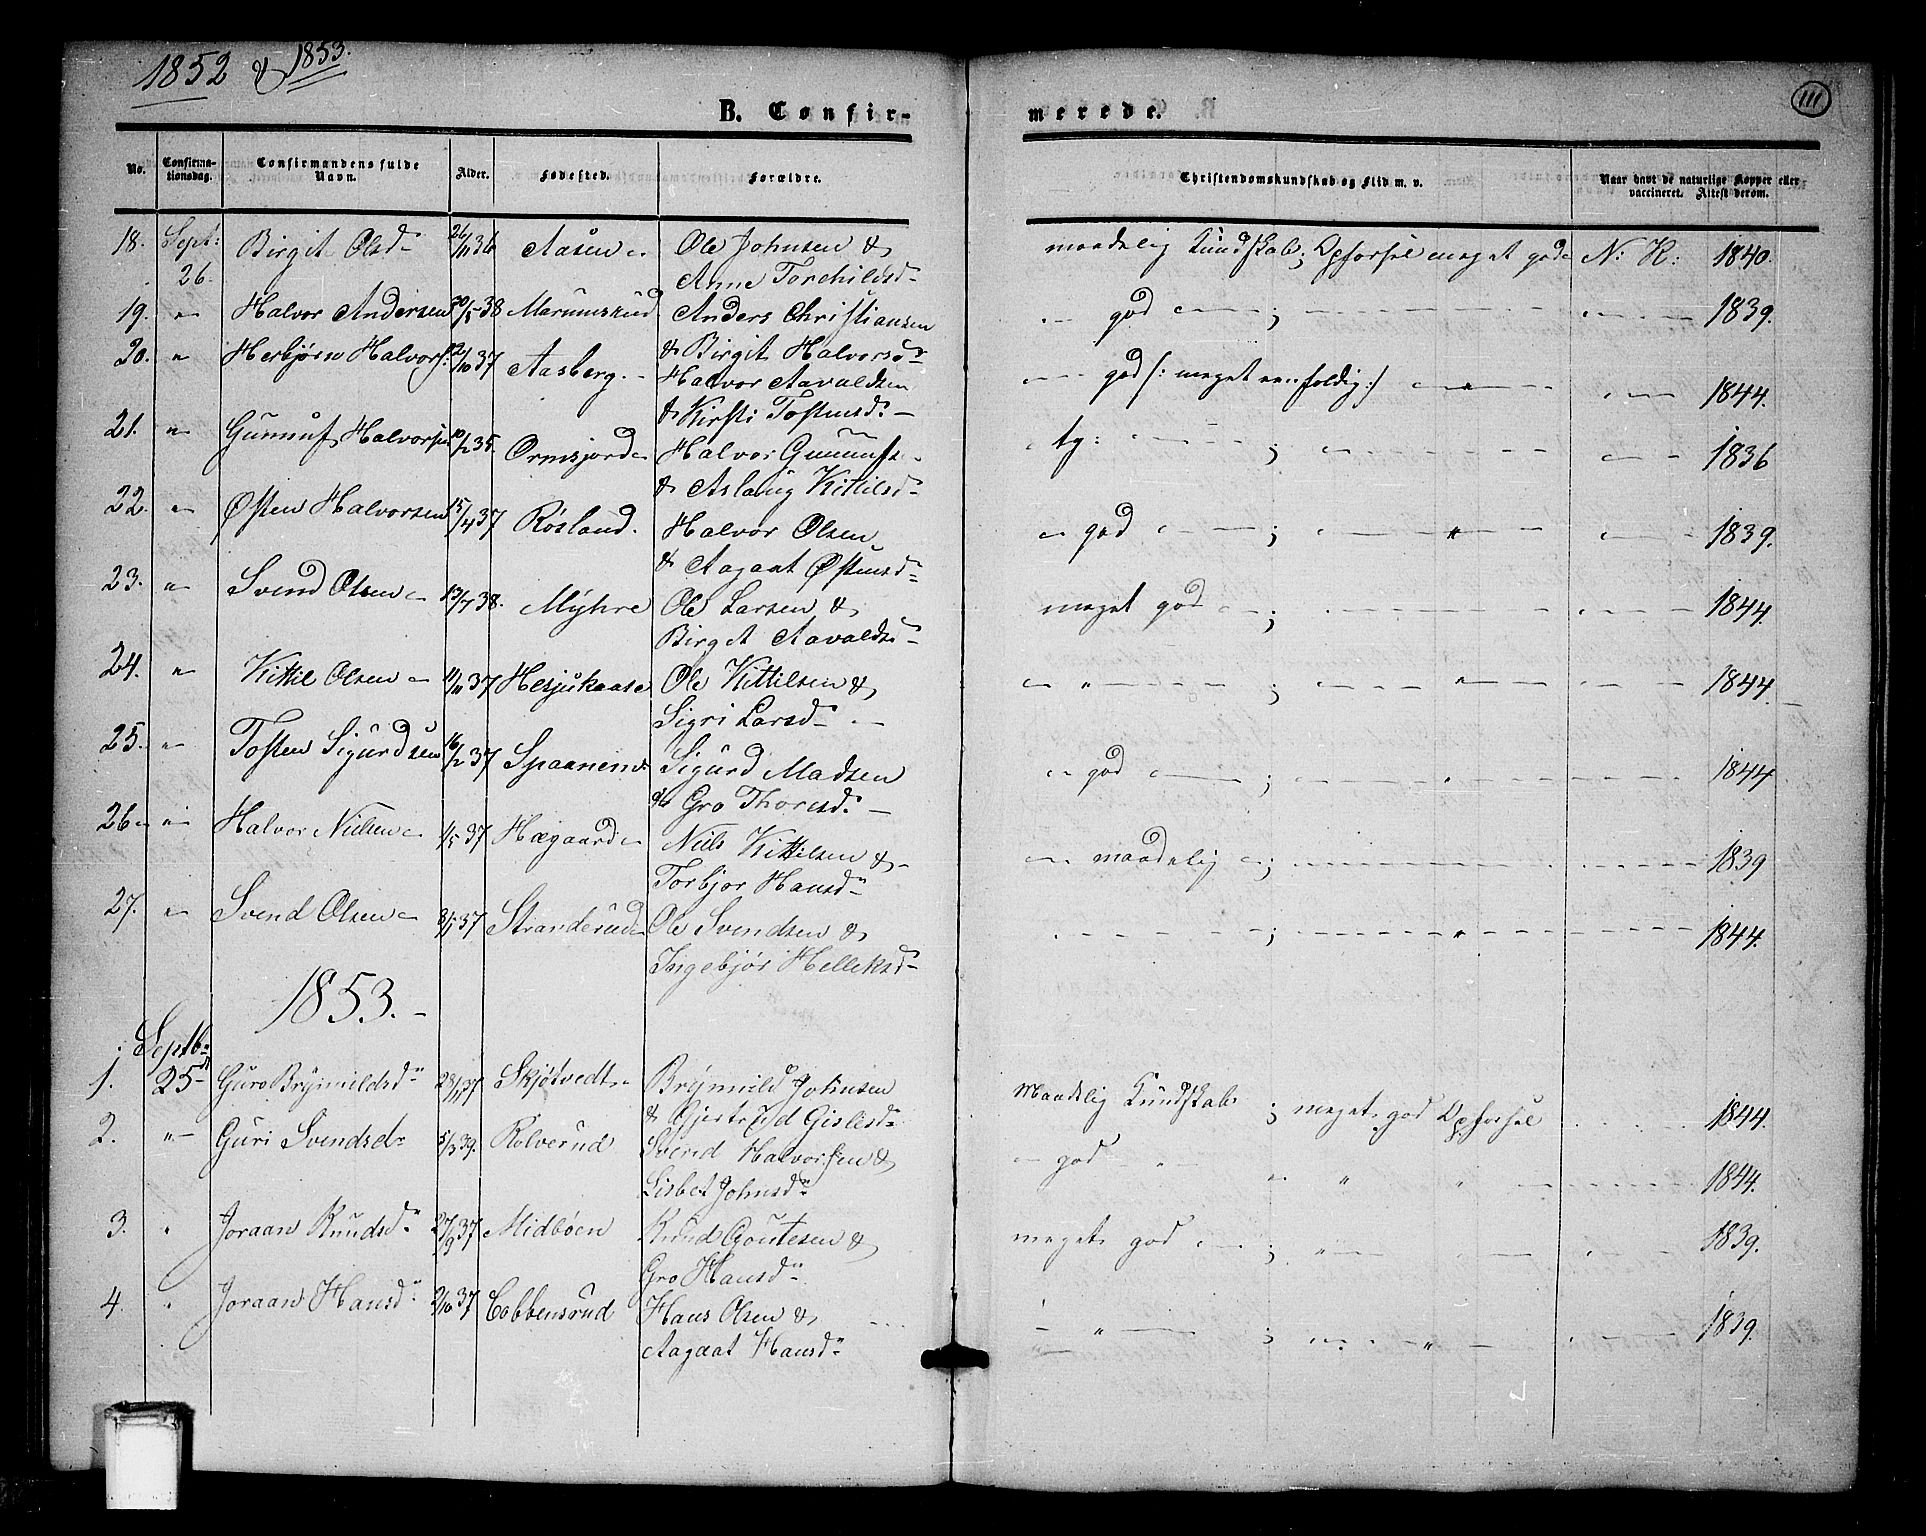 1852 & 1853.
111
B. Confir-
merede.
No.
Confirma-
tionsdag.
Confirmandens fulde
Navn.
Alder.
Fødested.
Forældre.
Christendomskundskab og Flid m. v.
Naar havt de naturlige Kopper eller
vaccineret. Attest derom.
18. Sept: 26. Birgit Olsd 26/11 36 Aasen Ole Johnsen &
Anne Torchilsd maadelig Kundskab; Opførsel meget god N: K: 1840.
19. " Halvor Andersen 20/5 38 Marumsrud Anders Christiansen
& Birgit Halvorsd god ; 1839.
20. " Herbjørn Halvors: 12/10 37 Aasberg. Halvor Aavaldsen
& Kirsti Tostensd: god /: meget eenfoldig :/ " 1844.
21. " Gunnuf Halvorsen 10/2 35. Ormsjord Halvor Gunnufs
& Aslaug Kittilsd tg: ; 1836
22. " Østen Halvorsen 15/4 37 Røsland. Halvor Olsen
& Aagaat Østensd: god ; " 1839.
23. " Svend Olsen 13/7 38. Myhre Ole Larsen &
Birget Aavaldsd meget god ; 1844.
24. " Kittil Olsen 11/11 37 Hesjukaase Ole Kittilsen &
Sigri Larsd " ; " 1844.
25. " Tosten Sigurdsen 16/2 37 Spaanem Sigurd Madsen
& Gro Thoresd: god ; " 1844
26 " Halvor Nielsen 1/5 37 Hægaard Niels Kittilsen &
Torbjor Hansd maadelig ; 1839
27. " Svend Olsen 3/1 37 Stranderud Ole Svendsen &
Ingebjør Helleksd ; " 1844.
1853.
Septb:
1. 25 Guro Brynnildsd 23/11 37 Skjøtvedt Brynnild Johnsen
& Gjertrud Gislesd Maadelig Kundskab ; meget god Opførsel 1844.
2. " Guri Svendsd 5/3 39. Rolverud Svend Halvorsen &
Lisbet Johnsd god " " " 1844.
3. " Joraan Knudsd 27/9 37 Midbøen Knud Goutesen &
Gro Hansd meget god ; " 1839.
4. " Joraan Hansd 2/10 37 Cobbensrud Hans Olsen &
Aagaat Hansd " ; " 1839.